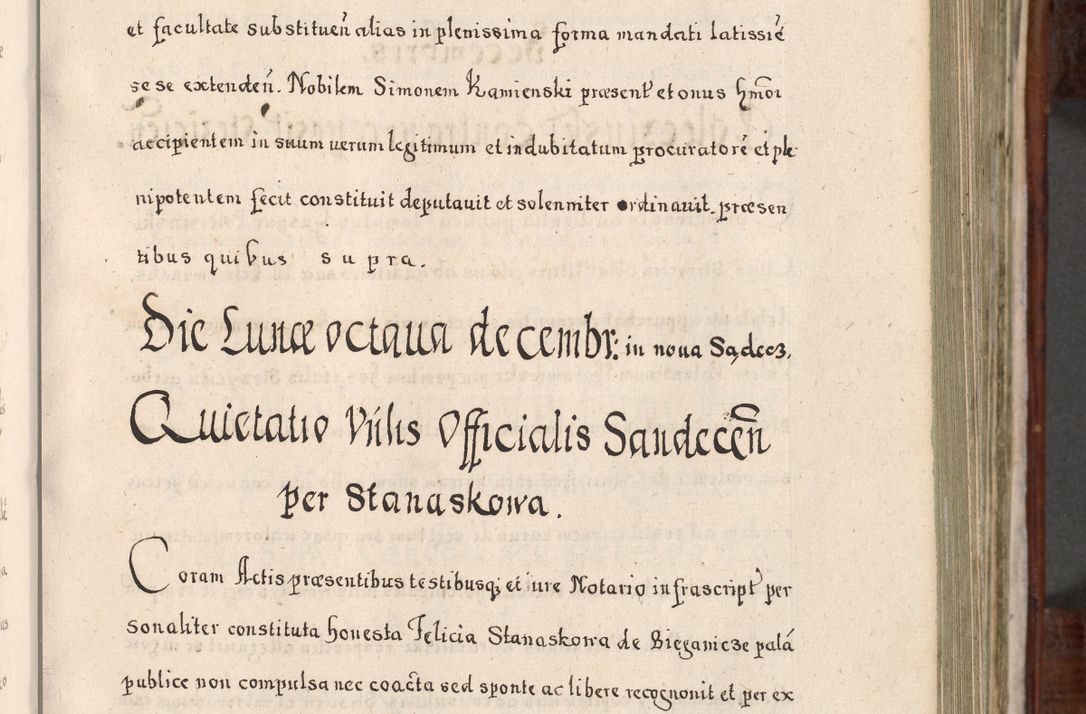 et facultate substitueñ alias in plenissima forma mandati latissiẽ
se se extendeñ. Nobilem Simonem Kamienski præsent et onus hmoi
accipientem in suum uerum legitimum et indubitatum procuratorẽ et ple
nipotentem fecit constituit deputauit et solenniter ordinauit. præsen
tibus quibus supra.
Die Lunæ octaua decembr: in noua Sądecz.
Quietatio Vñlis Officialis Sandeceñ
per Stanaskowa.
Coram Actis præsentibus testibusq; et Notario infrascript per
sonaliter constituta honesta Felicia Stanaskowa de Bieganicze palã
publice non compulsa nec coacta sed sponte ac libere recognouit et per ex